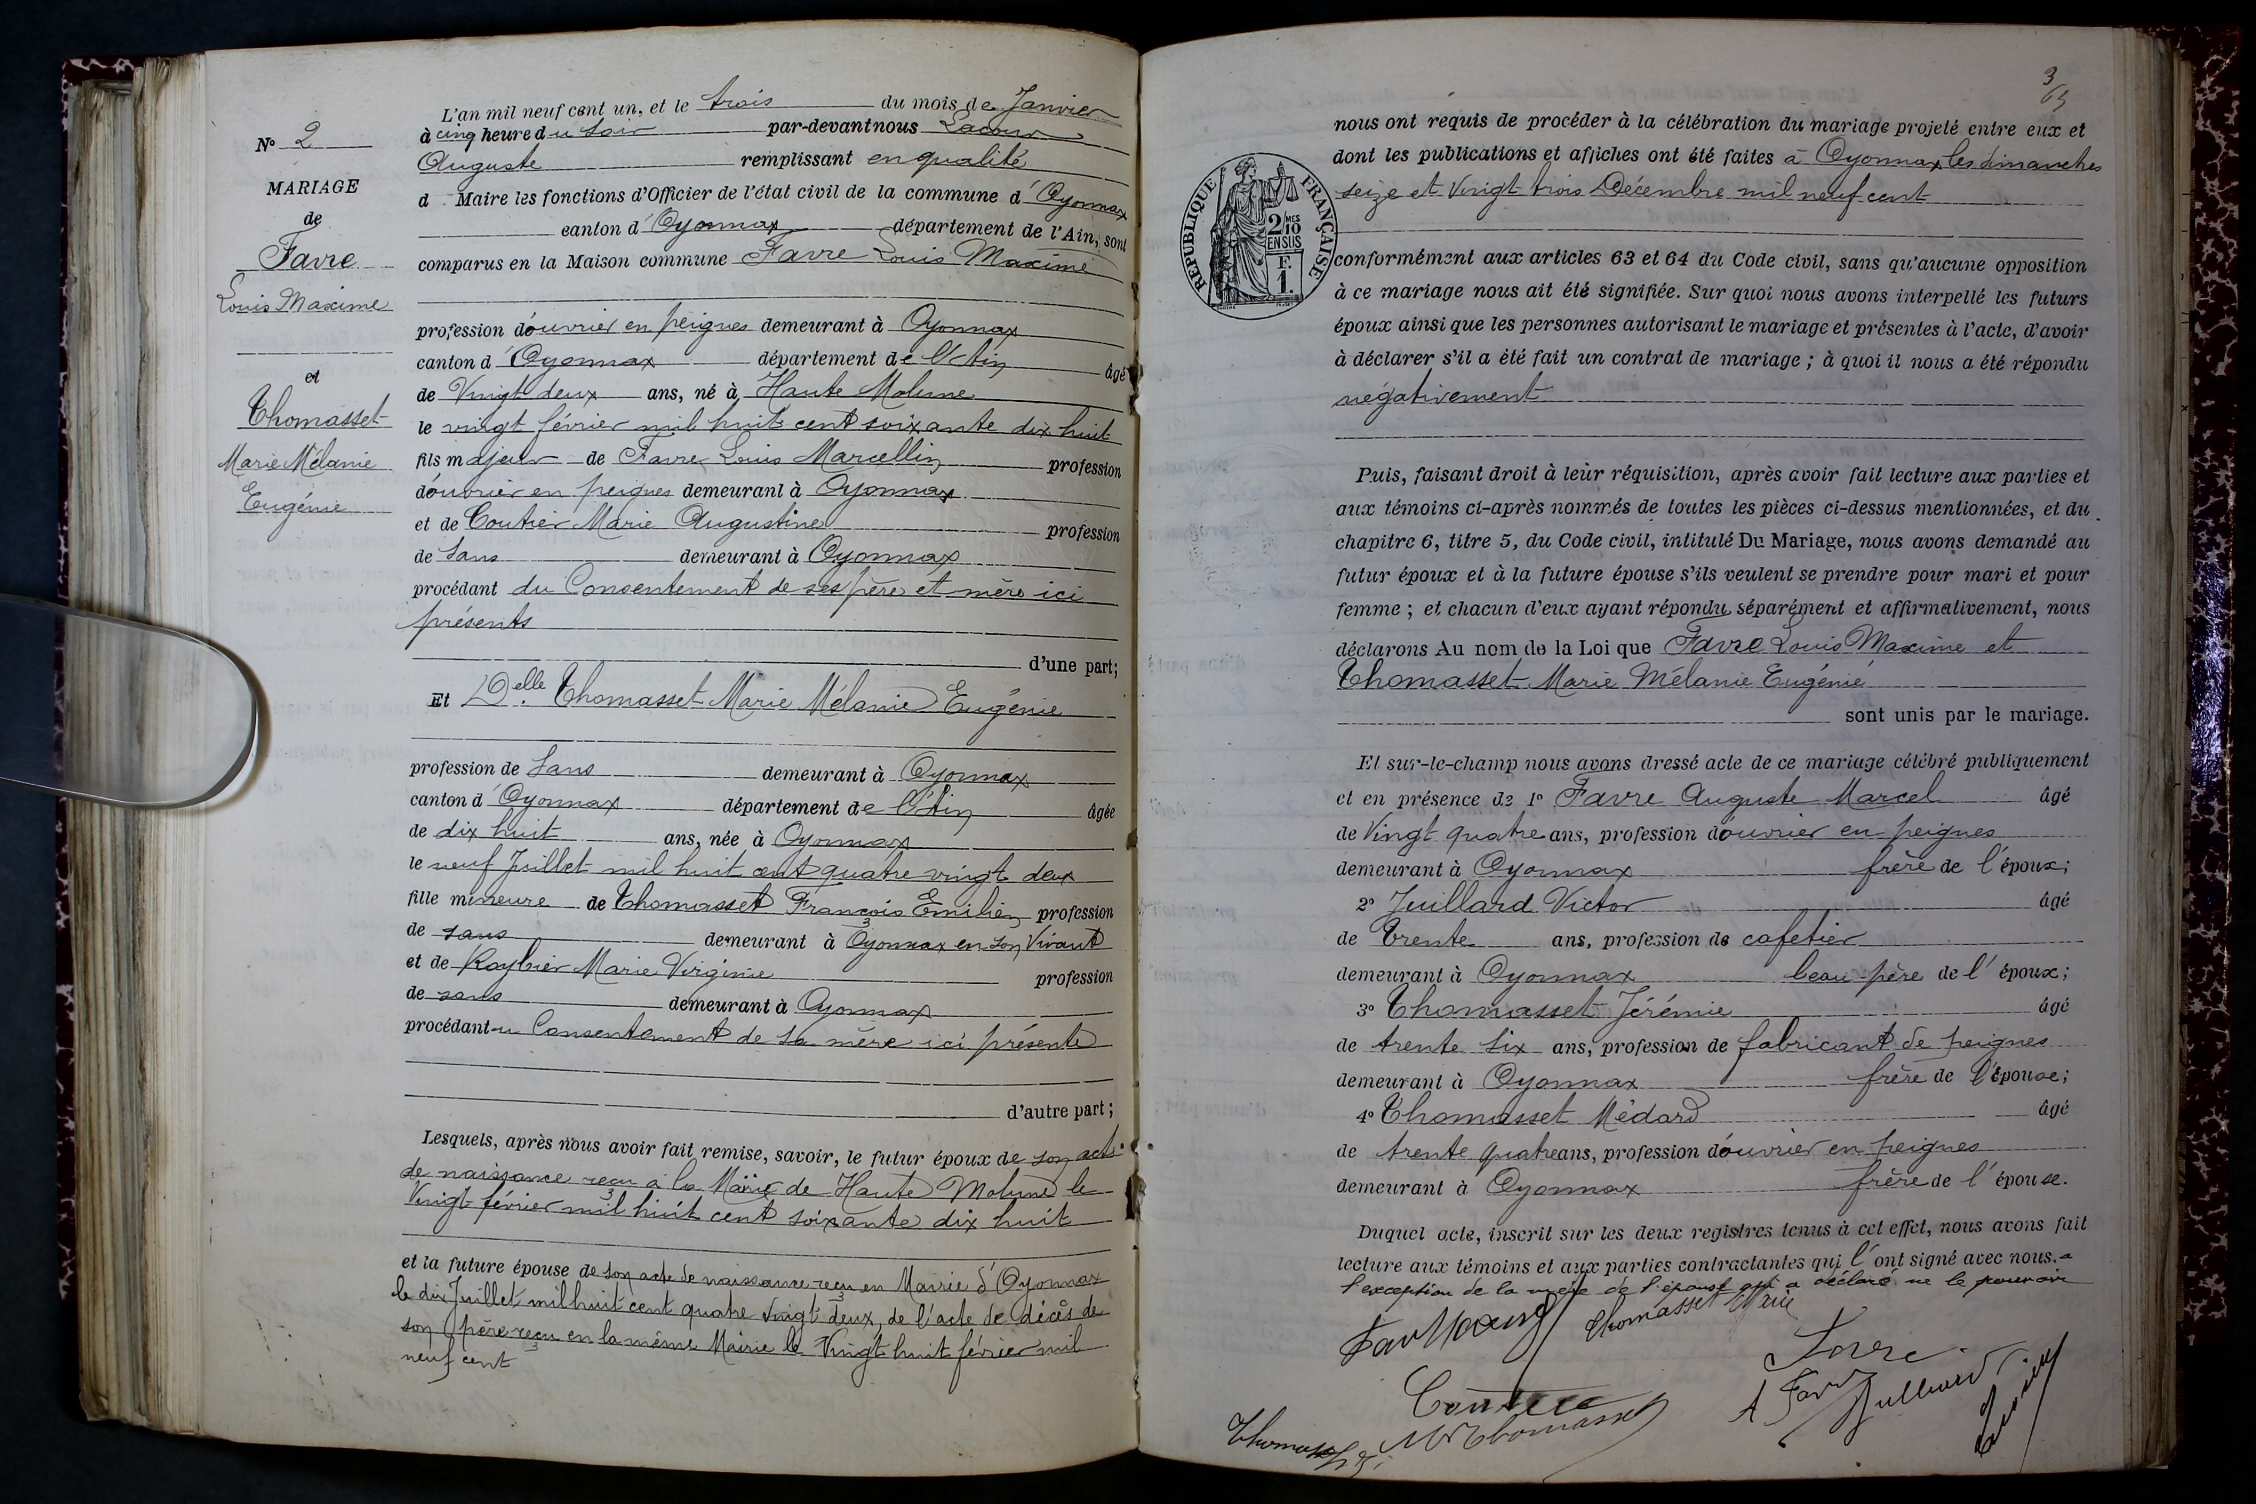 N° 2
MARIAGE
de
Favre
Louis Maxime
et
Thomasset
Marie Mélanie
Eugénie
L'an mil neuf cent un, et le trois du mois de Janvier
à cinq heure du soir par-devant nous Lacour
Auguste remplissant en qualité
d Maire les fonctions d'Officier de l'état civil de la commune d'Oyonnax
canton d'Oyonnax département de l'Ain, sont
comparus en la Maison commune Favre Louis Maxime
profession d'ouvrier en peignes demeurant à Oyonnax
canton d'Oyonnax département de l'Ain âgé
de Vingt deux ans, né à Haute Molune
le vingt février mil huit cent soixante dix huit
fils majeur de Favre Louis Marcellin profession
d'ouvrier en peignes demeurant à Oyonnax
et de Coutier Marie Augustine profession
de sans demeurant à Oyonnax
procédant du Consentement de ses père et mère ici
présents
d'une part;
Et Delle. Thomasset Marie Mélanie Eugénie
profession de sans demeurant à Oyonnax
canton d'Oyonnax département de l'Ain âgée
de dix huit ans, née à Oyonnax
le neuf Juillet mil huit cent quatre vingt deux
fille mineure de Thomasset François Emilien profession
de sans demeurant à Oyonnax en son Vivant
et de Raybier Marie Virginie profession
de sans demeurant à Oyonnax
procédant du Consentement de sa mère ici présente
d'autre part;
Lesquels, après nous avoir fait remise, savoir, le futur époux de son acte
de naissance reçu à la Mairie de Haute Molune le
Vingt février mil huit cent soixante dix huit
et la future épouse de son acte de naissance reçu en Mairie d'Oyonnax
le dix Juillet mil huit cent quatre vingt deux, de l'acte de décès de
son père reçu en la même Mairie le Vingt huit février mil
neuf cent
3
REPUBLIQUE FRANÇAISE
2 MES
10
EN SUS
F.
1.
nous ont requis de procéder à la célébration du mariage projeté entre eux et
dont les publications et affiches ont été faites à Oyonnax, les dimanches
seize et Vingt trois Décembre mil neuf cent
conformément aux articles 63 et 64 du Code civil, sans qu'aucune opposition
à ce mariage nous ait été signifiée. Sur quoi nous avons interpellé les futurs
époux ainsi que les personnes autorisant le mariage et présentes à l'acte, d'avoir
à déclarer s'il a été fait un contrat de mariage ; à quoi il nous a été répondu
négativement
Puis, faisant droit à leur réquisition, après avoir fait lecture aux parties et
aux témoins ci-après nommés de toutes les pièces ci-dessus mentionnées, et du
chapitre 6, titre 5, du Code civil, intitulé Du Mariage, nous avons demandé au
futur époux et à la future épouse s'ils veulent se prendre pour mari et pour
femme ; et chacun d'eux ayant répondu séparément et affirmativement, nous
déclarons Au nom de la Loi que Favre Louis Maxime et
Thomasset Marie Mélanie Eugénie
sont unis par le mariage.
Et sur-le-champ nous avons dressé acte de ce mariage célébré publiquement
et en présence de 1° Favre Auguste Marcel âgé
de Vingt quatre ans, profession d'ouvrier en peignes
demeurant à Oyonnax frère de l'époux;
2° Juillard Victor âgé
de Trente ans, profession de cafetier
demeurant à Oyonnax beau-père de l'époux;
3° Thomasset Jérémie âgé
de trente six ans, profession de fabricant de peignes
demeurant à Oyonnax frère de l'épouse;
4° Thomasset Médard âgé
de trente quatre ans, profession d'ouvrier en peignes
demeurant à Oyonnax frère de l'épouse.
Duquel acte, inscrit sur les deux registres tenus à cet effet, nous avons fait
lecture aux témoins et aux parties contractantes qui l'ont signé avec nous. à
l'exception de la mère de l'épouse qui a déclaré ne le pouvoir
Thomasset Marie
Favre
A Favre
Juillard
M Thomasset